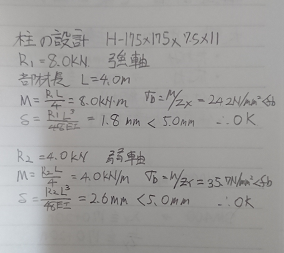 柱の設計 H-175×175×7.5×11
R₁=8.0KN 強軸
部材長 L=4.0m
M=R₁L/4=8.0KN·m σb=M/Zx=24.2N/mm²<fb
δ=R₁L³/48EI=1.8mm<5.0mm ∴OK
R₂=4.0KN 弱軸
M=R₂L/4=4.0KN/m σb=M/Zy=35.7N/mm²<fb
δ=R₂L³/48EI=2.6mm<5.0mm ∴OK